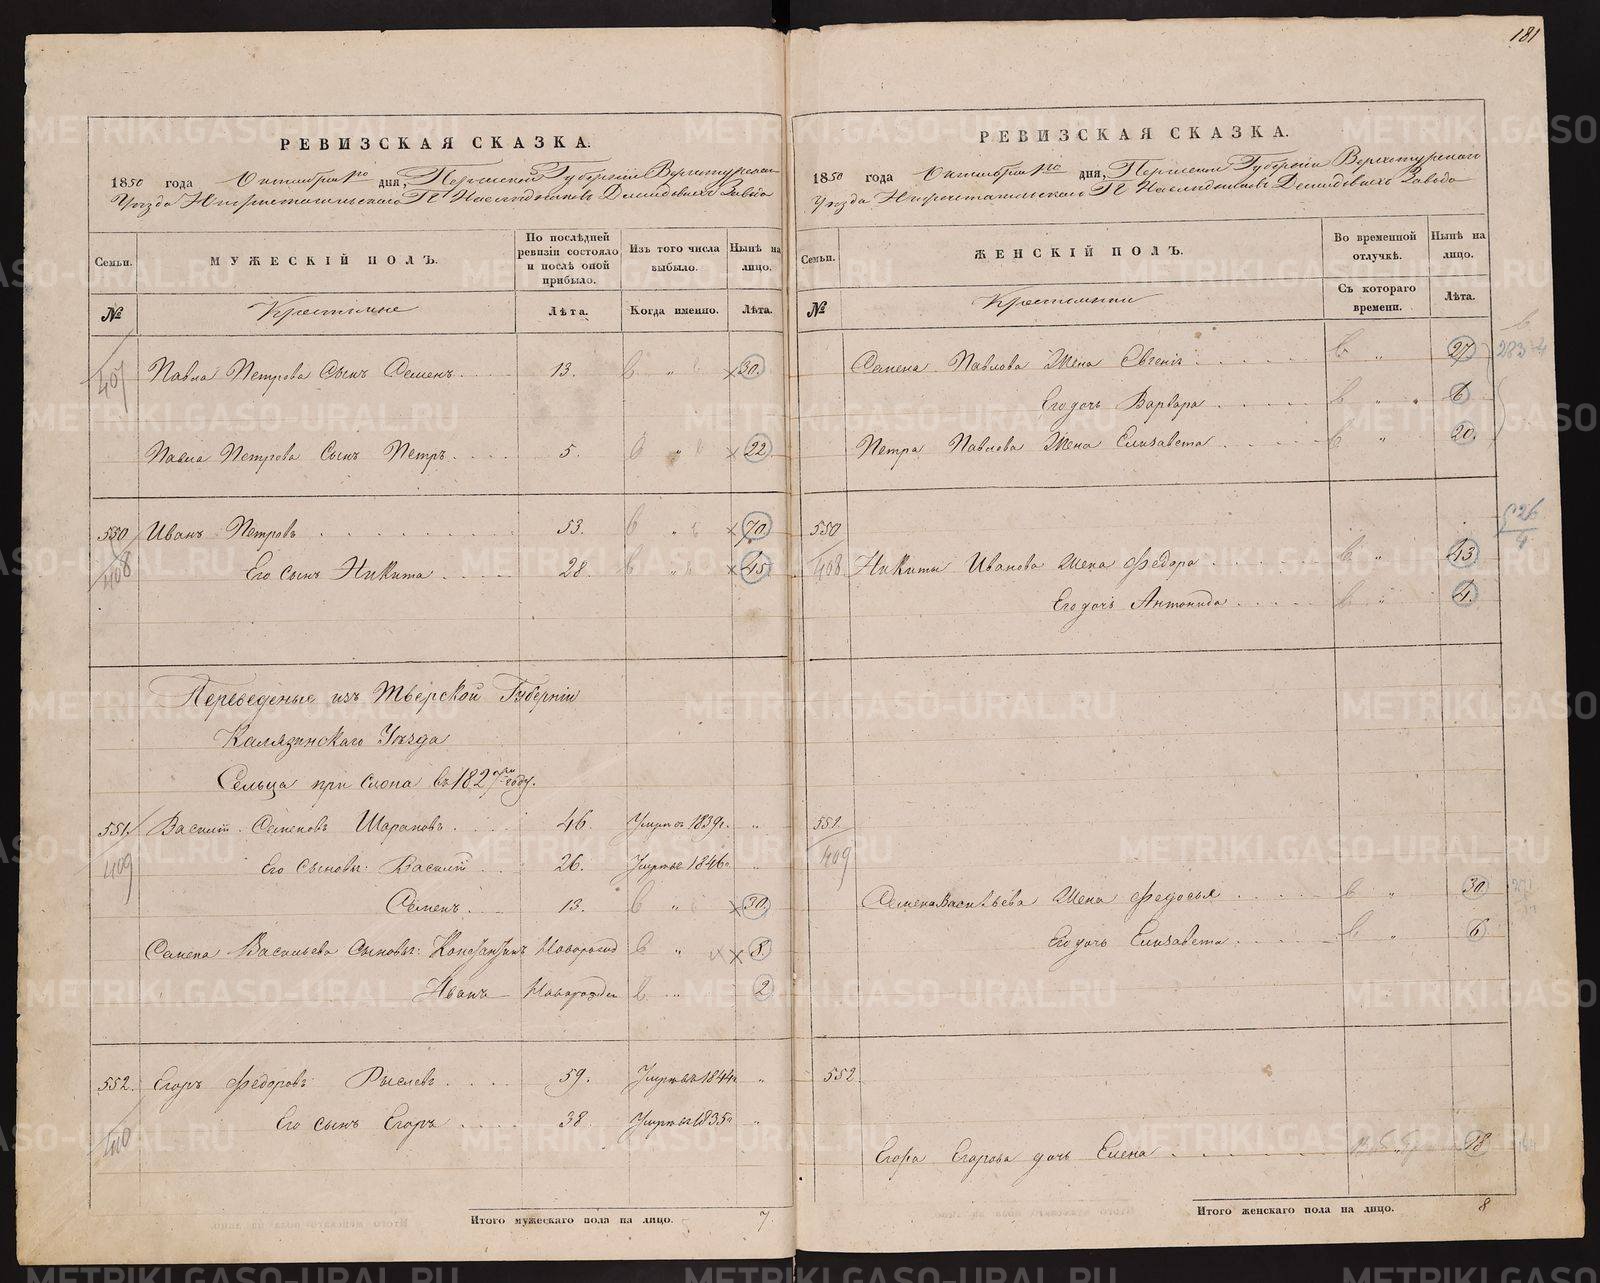 181
РЕВИЗСКАЯ СКАЗКА.
1850 года Октября 1го дня, Пермской Губернiи Верхотурскаго
Уѣзда Нижнетагильскаго ГГ Наслѣдниковъ Демидовыхъ Завода
Семьи.
МУЖЕСКIЙ ПОЛЪ.
По послѣдней ревизiи состояло и послѣ оной прибыло.
Изъ того числа выбыло.
Нынѣ на лицо.
№
Крестьяне
Лѣта.
Когда именно.
Лѣта.
407 Павла Петрова Сынъ Семенъ . . . 13. „ 30.
Павла Петрова Сынъ Петръ . . . 5. „ 22
550 Иванъ Петровъ . . . 53. „ 70.
408 Его Сынъ Никита . . . 28. „ 45
Переведеные изъ Тверской Губернiи
Калязинскаго Уѣзда
Сельца при слона въ 1827мъ году.
551. Василiй Семеновъ Шараповъ . . . 46. Умре въ 1839г. „
409 Его Сыновья: Василiй . . . 26. Умре въ 1846г „
Семенъ . . . 13. „ 30.
Семена Васильева Сыновья: Константинъ Новорожд „ 8.
Иванъ Новорожден „ 2
552. Егоръ Федоровъ . . . 59. Умре въ 1844г „
410 Его сынъ Егоръ . . . 38. Умре въ 1835г „
Итого мужескаго пола на лицо. 7
РЕВИЗСКАЯ СКАЗКА.
1850 года Октября 1го дня, Пермской Губернiи Верхотурскаго
Уѣзда Нижнетагильскаго ГГ Наслѣдниковъ Демидовыхъ Завода
Семьи.
ЖЕНСКIЙ ПОЛЪ.
Во временной отлучкѣ.
Нынѣ на лицо.
№
Крестьянки
Съ котораго времени.
Лѣта.
Семена Павлова Жена Евгенiя . . . „ 27
Его дочь Варвара . . . „ 6
Петра Павлова Жена Елизавета . . . „ 20.
550
408 Никиты Иванова Жена Федора . . . „ 43
Его дочь Антонида . . . „ 4.
551.
409
Семена Васильева Жена Федосья . . . „ 30
Его дочь Елизавета . . . „ 6
552
Егора Егорова дочь Елена . . . 18
Итого женскаго пола на лицо. 8
METRIKI.GASO-URAL.RU